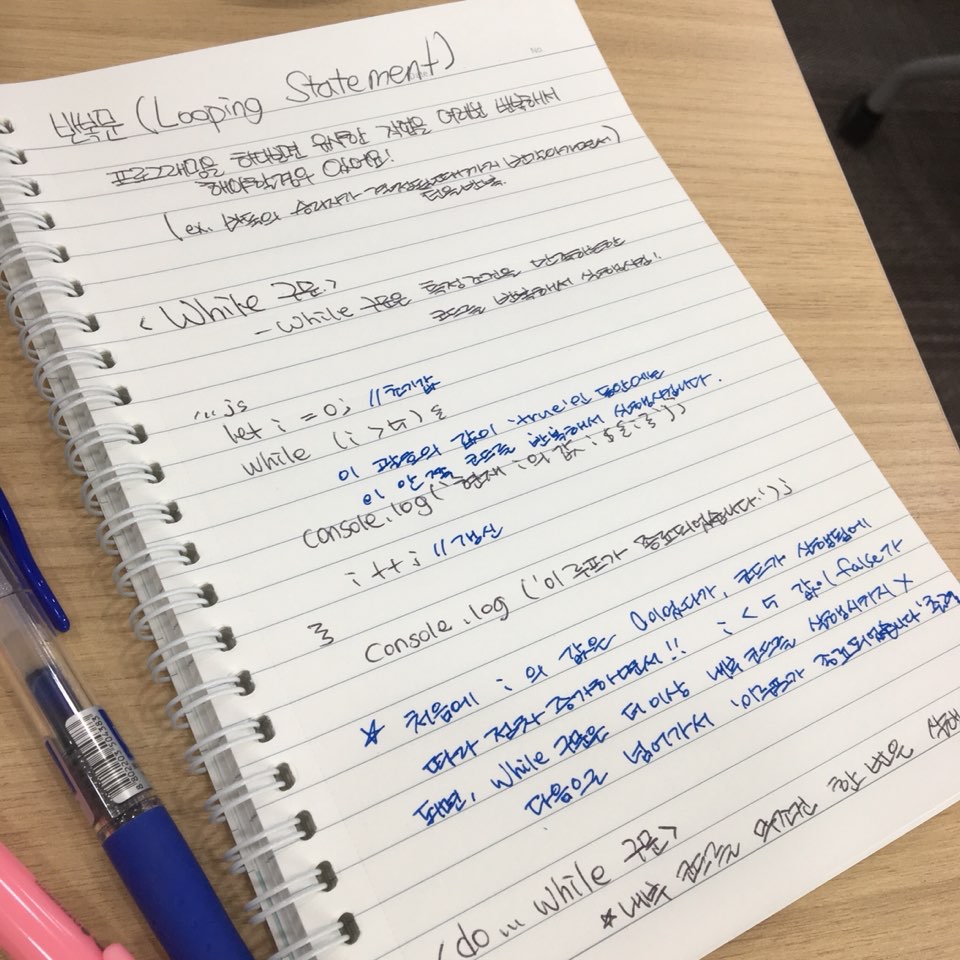 No.
반복문 (Looping Statement)
프로그래밍을 하다보면 유사한 작업을 여러번 반복해서
해야할경우 있어요!
(ex. 바둑의 승리자가 결정될때까지 번갈아가면서)
턴을 반복
<While 구문>
- While 구문은 특정 조건을 만족하는한
코드를 반복해서 실행시킴!
...js
let i = 0; //초기값
while (i > 5) {
이 괄호의 값이 'true'인 동안에는
이 안쪽 코드를 반복해서 실행시킵니다.
console.log(`현재 i의 값 : ${i}`);
i++; //갱신
}
Console.log ('이 루프가 종료되었습니다.');
☆ 처음에 i의 값은 0이었다가, 코드가 실행됨에
따라 점차 증가하면서!! i < 5 값이 false가
되면, While 구문은 더이상 내부 코드를 실행시키지 X
다음으로 넘어가서 '이 루프가 종료되었습니다' 출력
<do ... While 구문>
☆ 내부 코드를 한 번은
9802203504383